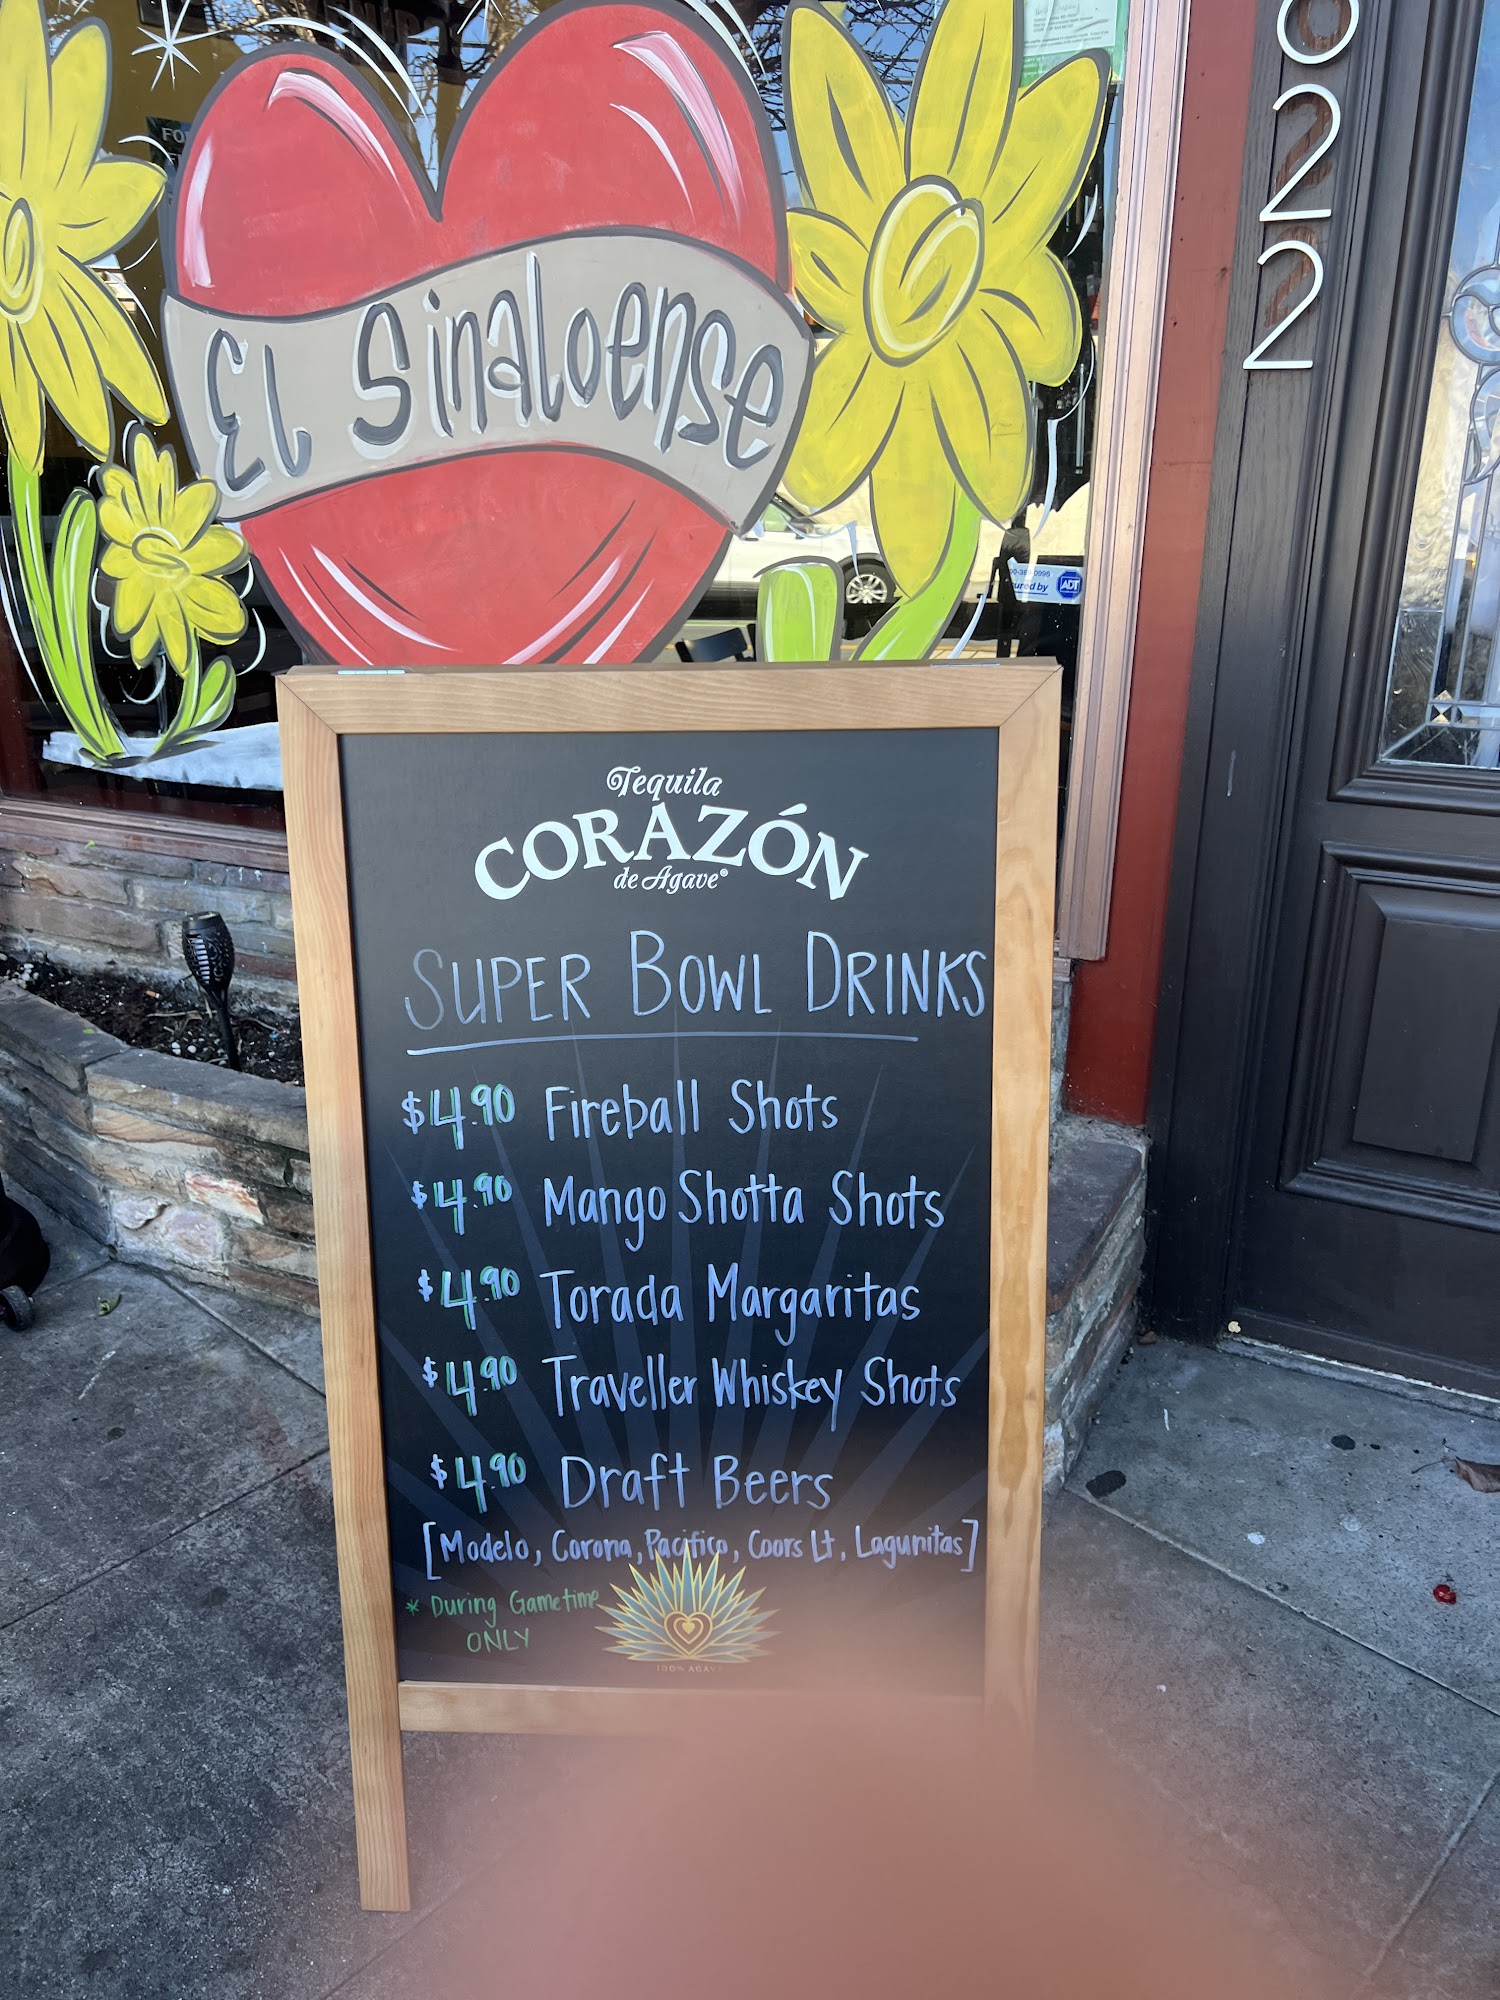 El Sinaloense
022
ured by ADT
Tequila
CORAZÓN
de Agave®
SUPER BOWL DRINKS
$4.90 Fireball Shots
$4.90 Mango Shotta Shots
$4.90 Torada Margaritas
$4.90 Traveller Whiskey Shots
$4.90 Draft Beers
[Modelo, Corona, Pacifico, Coors Lt, Lagunitas]
* During Gametime
ONLY
100% AGAVE